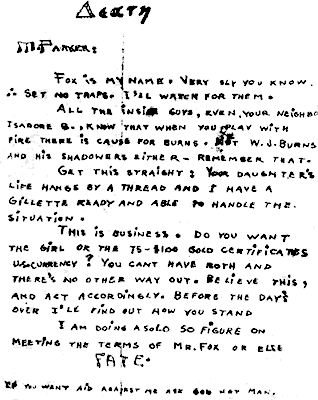 DEATH
M. PARKER:
FOX IS MY NAME. VERY SLY YOU KNOW.
∴ SET NO TRAPS. I'LL WATCH FOR THEM.
ALL THE INSIDE GUYS, EVEN YOUR NEIGHBO
ISADORE B., KNOW THAT WHEN YOU PLAY WITH
FIRE THERE IS CAUSE FOR BURNS. NOT W.J. BURNS
AND HIS SHADOWERS EITHER - REMEMBER THAT.
GET THIS STRAIGHT: YOUR DAUGHTER'S
LIFE HANGS BY A THREAD AND I HAVE A
GILLETTE READY AND ABLE TO HANDLE THE
SITUATION.
THIS IS BUSINESS. DO YOU WANT
THE GIRL OR THE 75-$100 GOLD CERTIFICATES
U.S. CURRENCY? YOU CANT HAVE BOTH AND
THERE'S NO OTHER WAY OUT. BELIEVE THIS,
AND ACT ACCORDINGLY. BEFORE THE DAY'S
OVER I'LL FIND OUT HOW YOU STAND
I AM DOING A SOLO SO FIGURE ON
MEETING THE TERMS OF MR. FOX OR ELSE
FATE.
IF YOU WANT AID AGAINST ME ASK GOD NOT MAN.